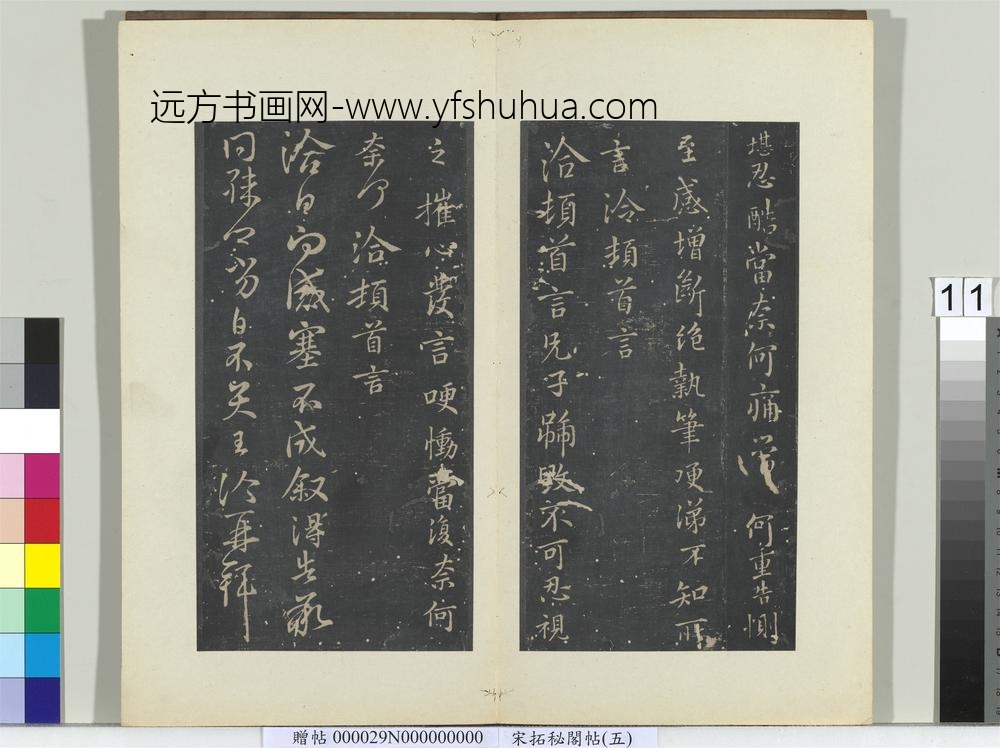 远方书画网-www.yfshuhua.com
堪忍酷當奈何痛深何重告惻
至感增斷絶執筆哽涕不知所
言洽頓首言
洽頓首言兄子號毀不可忍視
之摧心發言哽慟當復奈何
奈何洽頓首言
洽白感塞不成叙得告承
問自不王洽再拜
11
贈帖 000029N000000000 宋拓秘閣帖(五)